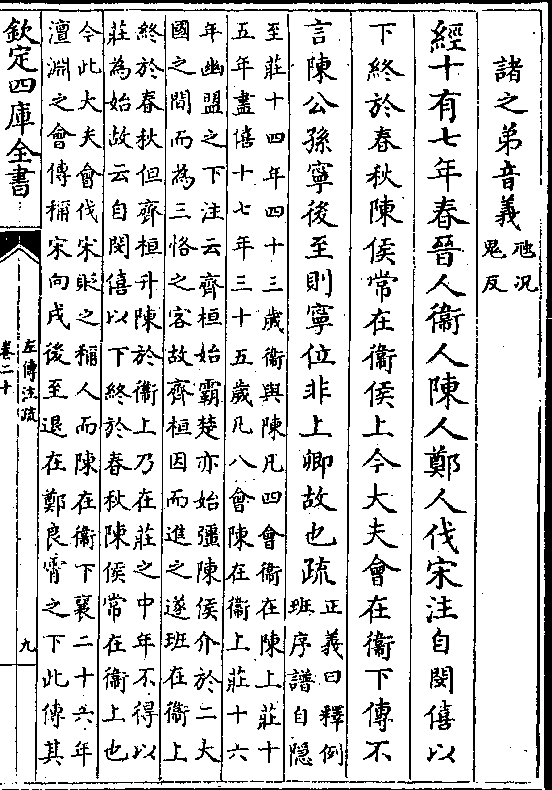 諸之弟音義虺況
鬼反
經十有七年春晉人衞人陳人鄭人伐宋注自閔僖以
下終於春秋陳侯常在衞侯上今大夫會在衞下傳不
言陳公孫寧後至則寧位非上卿故也疏正義曰釋例
班序譜自隱
至莊十四年四十三歲衞與陳凡四會衞在陳上莊十
五年盡僖十七年三十五歲凡八會陳在衞上莊十六
年幽盟之下注云齊桓始霸楚亦始彊陳侯介於二大
國之間而為三恪之客故齊桓因而進之遂班在衞上
終於春秋但齊桓升陳於衞上乃在莊之中年不得以
莊為始故云自閔僖以下終於春秋陳侯常在衞上也
今此大夫會伐宋貶之稱人而陳在衞下襄二十六年
澶淵之會傳稱宋向戌後至退在鄭良霄之下此傳其
欽定四庫全書
左傳注疏
卷二十
九